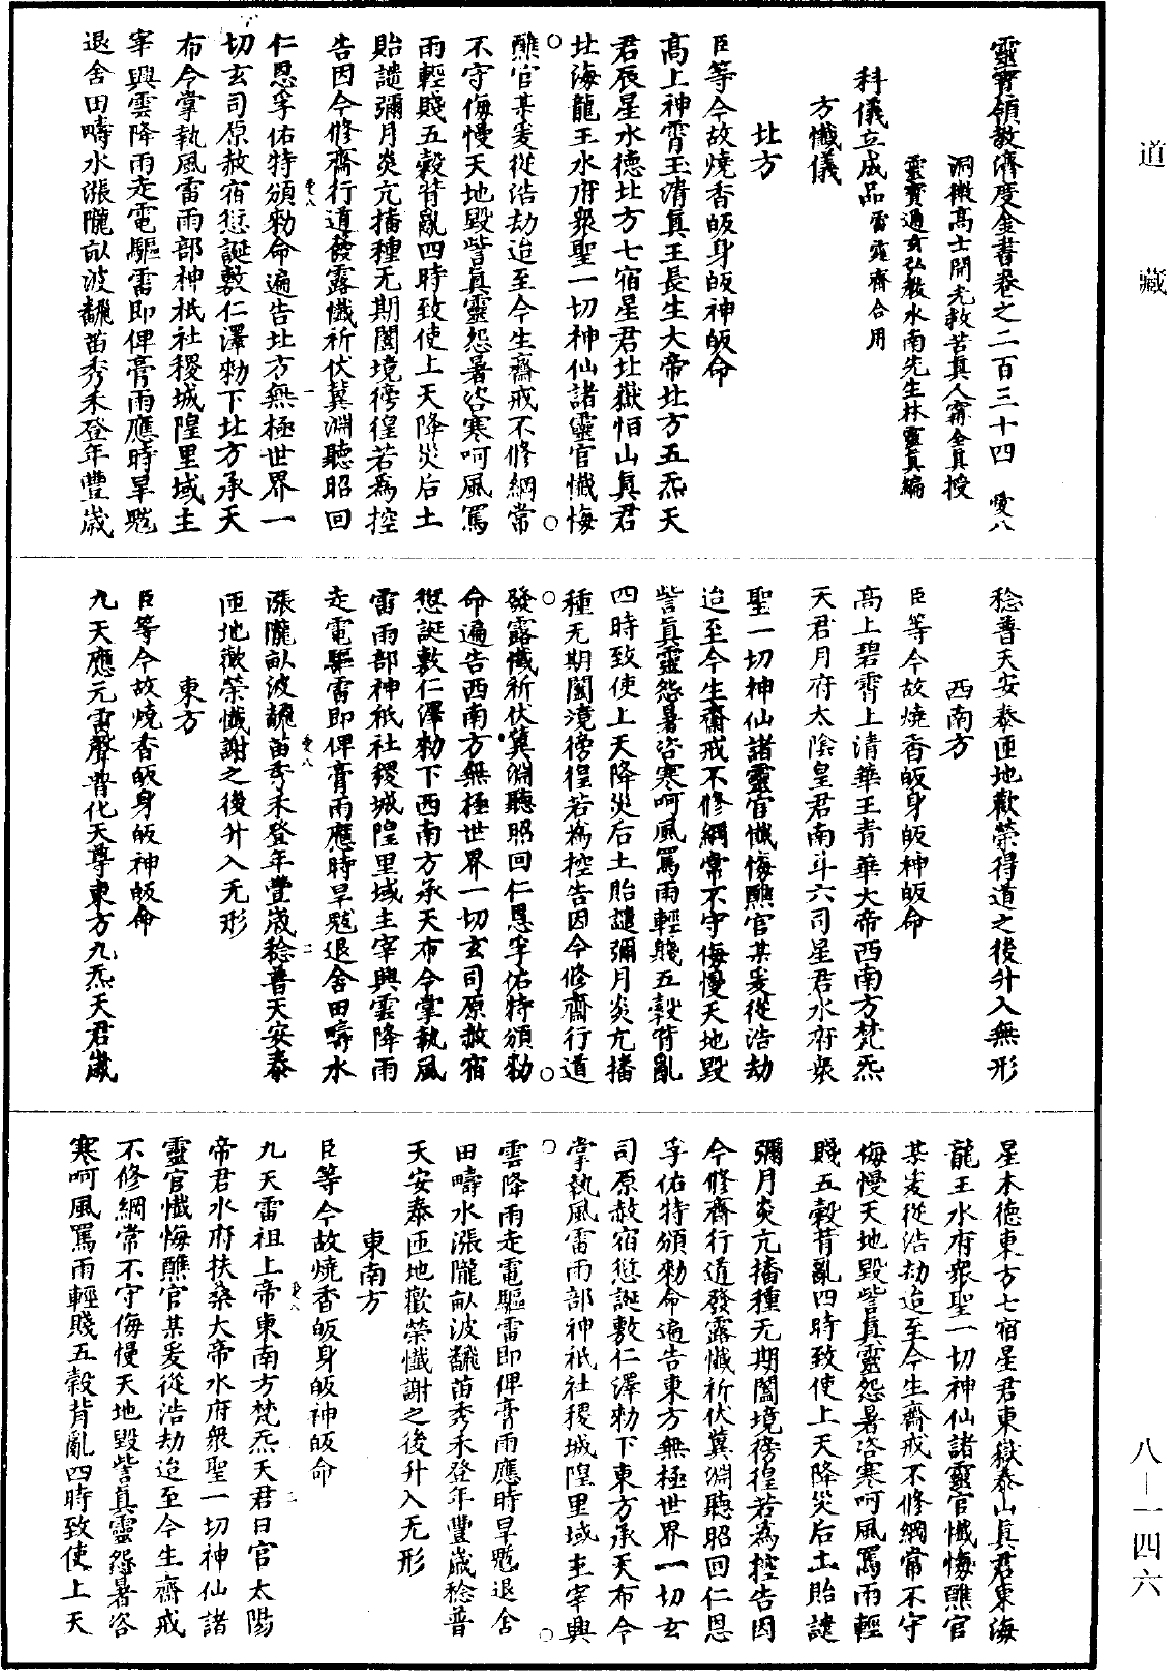 道藏
靈寶領教濟度金書卷之二百三十四　愛八
洞微高士開光救苦真人甯全真授
靈寶通玄弘教水南先生林靈真編
科儀立成品雷霆齋合用
方懺儀
北方
臣等今故燒香皈身皈神皈命
高上神霄玉清真王長生大帝北方五炁天
君辰星水德北方七宿星君北嶽恒山真君
北海龍王水府眾聖一切神仙諸靈官懺悔
醮官某爰從浩劫迨至今生齋戒不修綱常
不守侮慢天地毀訾真靈怨暑咨寒呵風罵
雨輕賤五穀背亂四時致使上天降災后土
貽譴彌月炎亢播種无期闔境徬徨若為控
告因今修齋行道發露懺祈伏冀淵聽昭回
仁恩孚佑特頒勑命遍告北方無極世界一
切玄司原赦宿愆誕敷仁澤勑下北方承天
布令掌執風雷雨部神祇社稷城隍里域主
宰興雲降雨走電驅雷即俾膏雨應時旱魃
退舍田疇水漲隴畝波飜苗秀禾登年豐歲
稔普天安泰匝地歡榮得道之後升入無形
西南方
臣等今故燒香皈身皈神皈命
高上碧霄上清華王青華大帝西南方梵炁
天君月府太陰皇君南斗六司星君水府眾
聖一切神仙諸靈官懺悔醮官某爰從浩劫
迨至今生齋戒不修綱常不守侮慢天地毀
訾真靈怨暑咨寒呵風罵雨輕賤五穀背亂
四時致使上天降災后土貽譴彌月炎亢播
種无期闔境徬徨若為控告因今修齋行道
發露懺祈伏冀淵聽昭回仁恩孚佑特頒勑
命遍告西南方無極世界一切玄司原赦宿
愆誕敷仁澤勑下西南方承天布令掌執風
雷雨部神祇社稷城隍里域主宰興雲降雨
走電驅雷即俾膏雨應時旱魃退舍田疇水
漲隴畝波飜苗秀禾登年豐歲稔普天安泰
匝地歡榮懺謝之後升入无形
東方
臣等今故燒香皈身皈神皈命
九天應元雷聲普化天尊東方九炁天君歲
星木德東方七宿星君東嶽泰山真君東海
龍王水府眾聖一切神仙諸靈官懺悔醮官
某爰從浩劫迨至今生齋戒不修綱常不守
侮慢天地毀訾真靈怨暑咨寒呵風罵雨輕
賤五穀背亂四時致使上天降災后土貽譴
彌月炎亢播種无期闔境徬徨若為控告因
今修齋行道發露懺祈伏冀淵聽昭回仁恩
孚佑特頒勑命遍告東方無極世界一切玄
司原赦宿愆誕敷仁澤勑下東方承天布令
掌執風雷雨部神祇社稷城隍里域主宰興
雲降雨走電驅雷即俾膏雨應時旱魃退舍
田疇水漲隴畝波飜苗秀禾登年豐歲稔普
天安泰匝地歡榮懺謝之後升入无形
東南方
臣等今故燒香皈身皈神皈命
九天雷祖上帝東南方梵炁天君日官太陽
帝君水府扶桑大帝水府眾聖一切神仙諸
靈官懺悔醮官某爰從浩劫迨至今生齋戒
不修綱常不守侮慢天地毀訾真靈怨暑咨
寒呵風罵雨輕賤五穀背亂四時致使上天
八—一四六